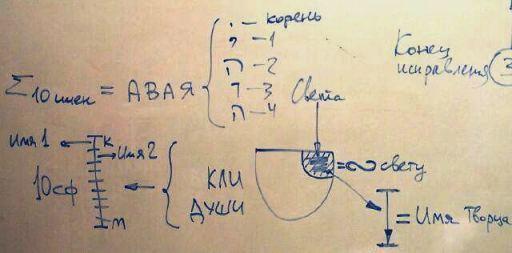 · – корень
י – 1
ה – 2
ו – 3
ה – 4
Σ 10 имен = АВАЯ {
Конец
исправления 3
Света
имя 1
К
имя 2
10 сф
М
КЛИ
ДУШИ
= ∞ свету
= Имя Творца